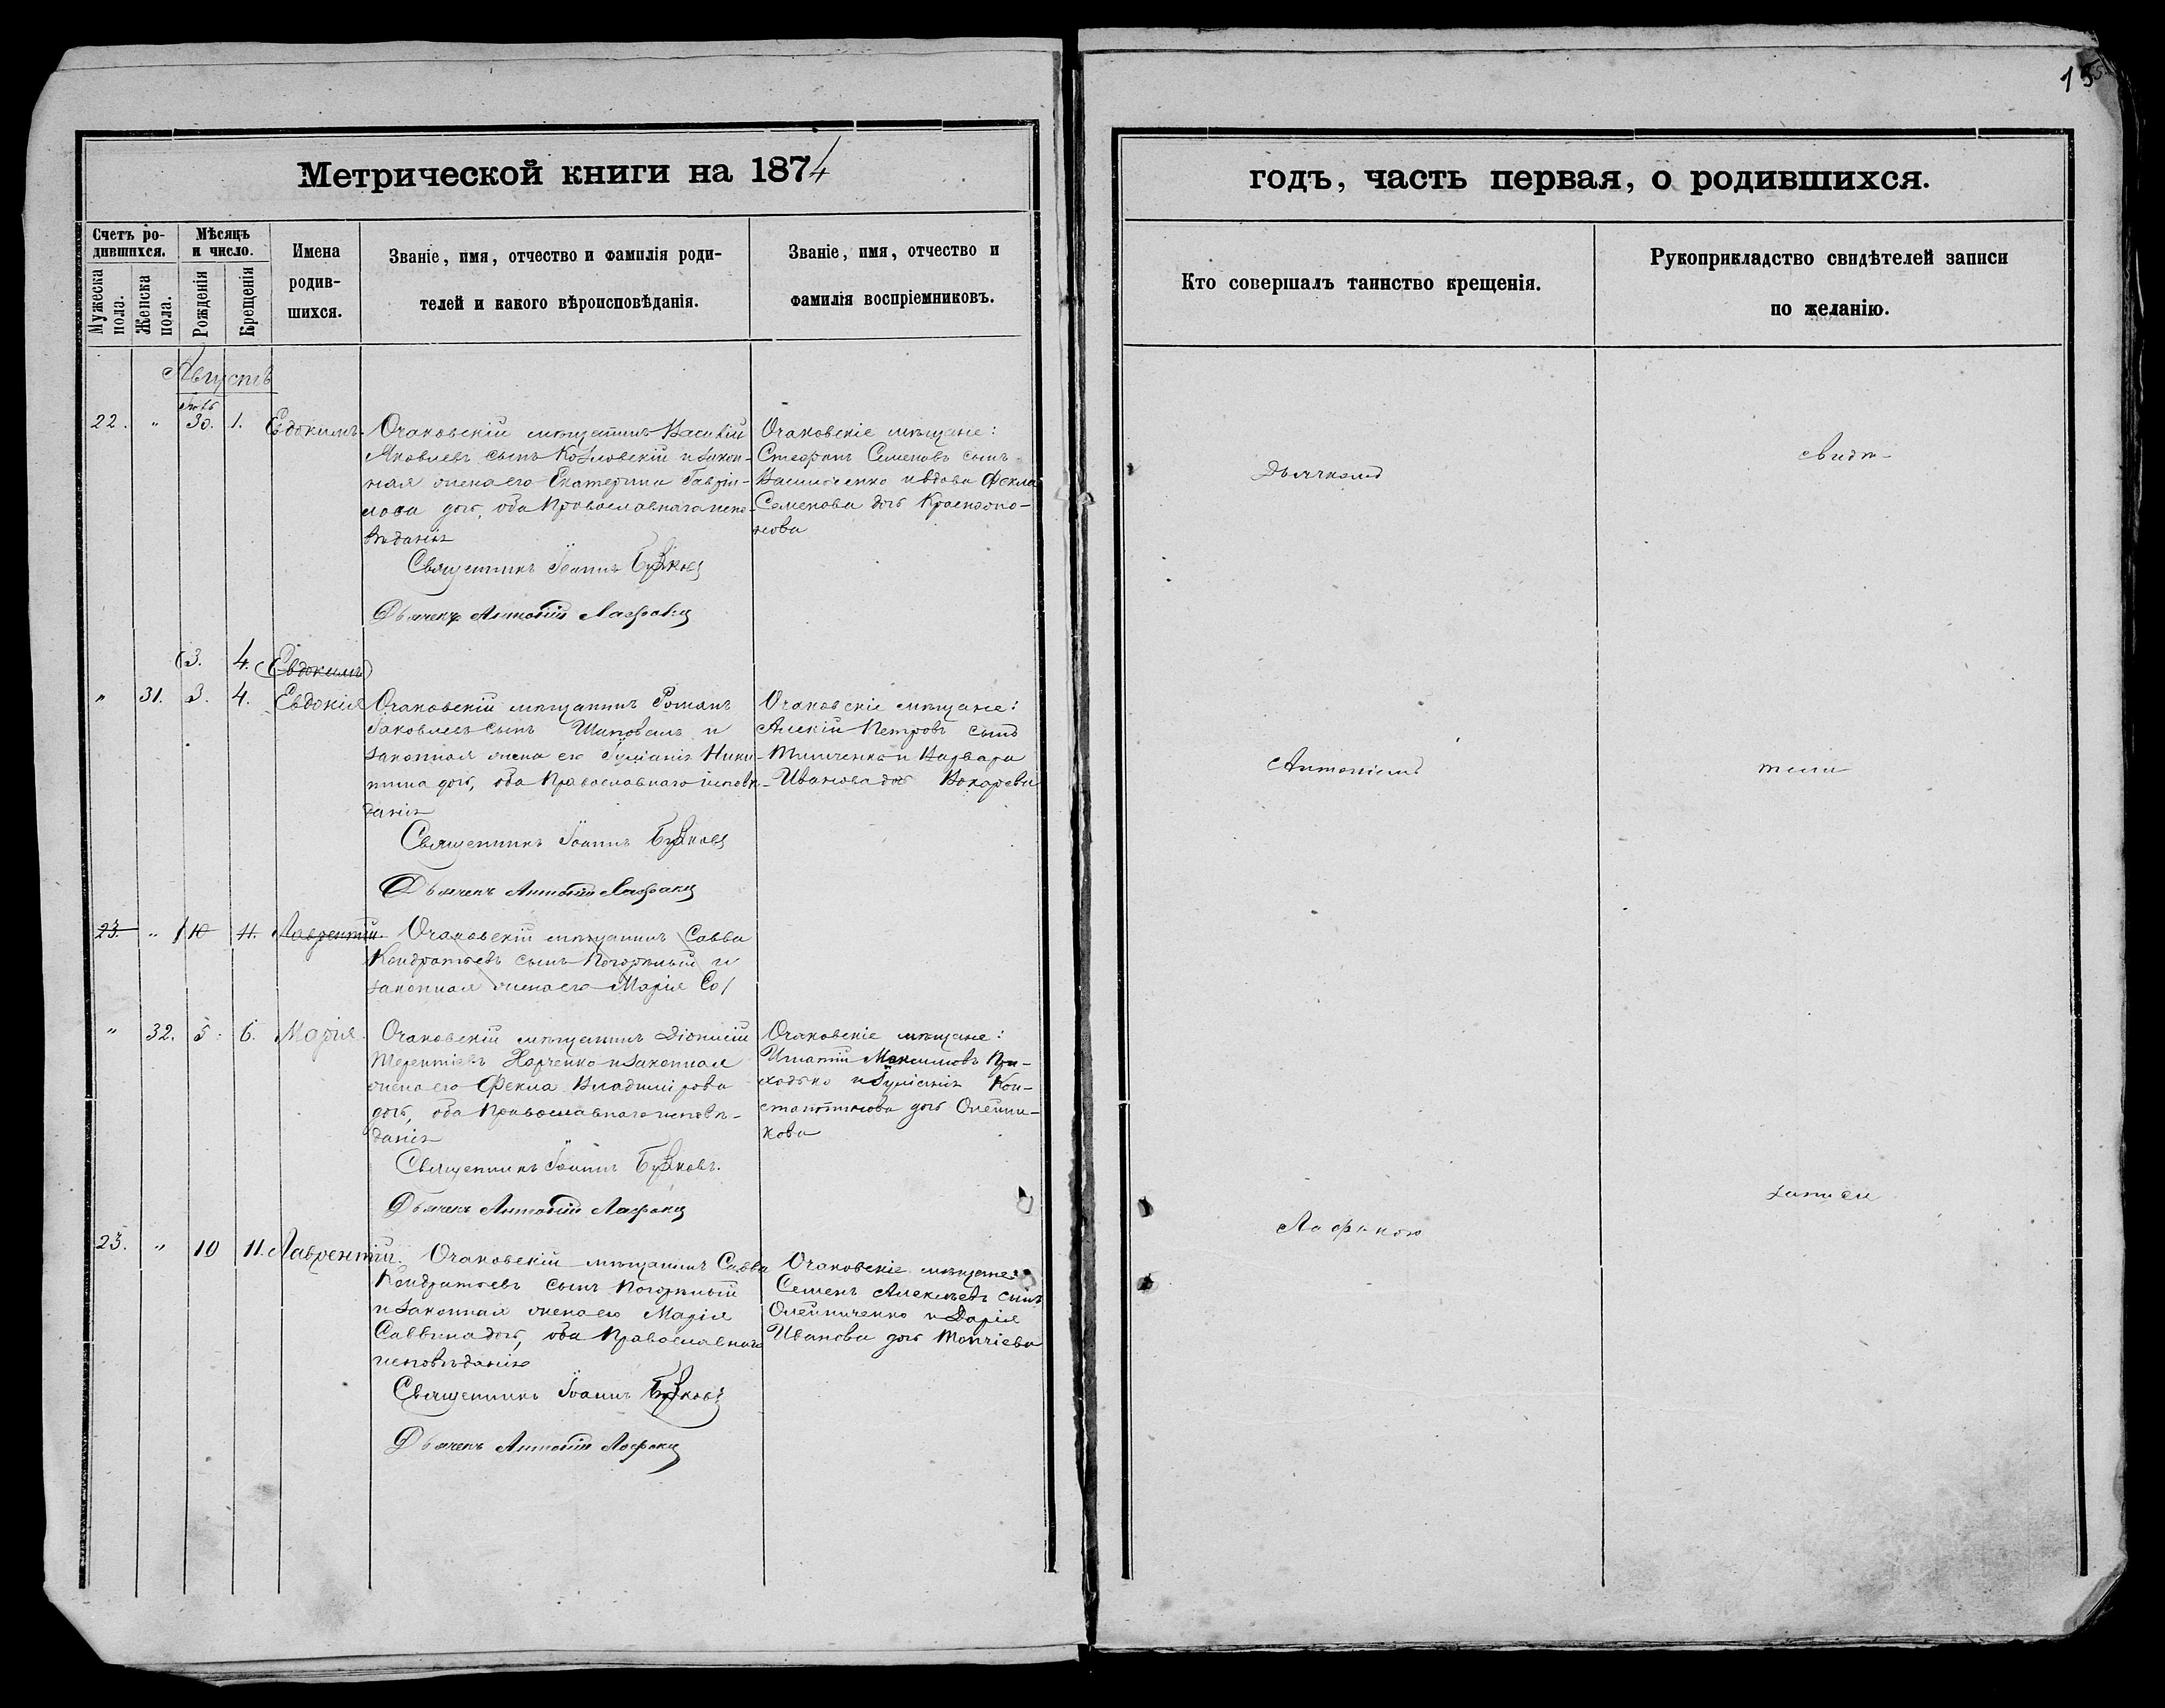 155
Метрической книги на 1874
годъ, часть первая, о родившихся.
Счетъ ро-
дившихся.
Мужеска пола.
Женска пола.
Мѣсяцъ
и число.
Рожденія
Крещенія
Имена
родив-
шихся.
Званіе, имя, отчество и фамилія роди-
телей и какого вѣроисповѣданія.
Званіе, имя, отчество и
фамилія воспріемниковъ.
Кто совершалъ таинство крещенія.
Рукоприкладство свидѣтелей записи
по желанію.
Августъ
22. " 30. 1. Евдокимъ.
Очаковскій мѣщанинъ Василій
Яковлевъ сынъ Козловскій и закон-
ная жена его Екатерина Гаврiи-
лова дочь, оба Православнаго испо-
вѣданія
Священникъ Іоаннъ
Дьячекъ Антоній
Очаковскіе мѣщане:
Стефанъ Семеновъ сынъ
Василченко и вдова Фекла
Семенова дочь
нова
3. 4. Евдокимъ
" 31. 3. 4. Евдокія
Очаковскій мѣщанинъ Романъ
Іаковлевъ сынъ Шаповалъ и
законная жена его Іуліанія Ники-
тина дочь, оба Православнаго исповѣ-
данія
Священникъ Іоаннъ
Дьячекъ Антоній
Очаковскіе мѣщане:
Алексій Петровъ сынъ
и Варвара
Иванова дочь
23. " 10 11. Лаврентій.
Очаковскій мѣщанинъ Савва
Кондратьевъ сынъ Погорѣлый и
законная жена его Марія Са/
" 32. 5. 6. Марія.
Очаковскій мѣщанинъ Діонисій
Терентіевъ Харченко и законная
жена его Фекла Владимірова
дочь, оба Православнаго исповѣ-
данія
Священникъ Іоаннъ
Дьячекъ Антоній
Очаковскіе мѣщане:
Игнатій Максимовъ При-
ходько и Іуліанія Кон-
стантинова дочь Олейни-
кова
23. " 10 11. Лаврентій.
Очаковскій мѣщанинъ Савва
Кондратьевъ сынъ Погорѣлый
и законная жена его Марія
Саввина дочь, оба Православнаго
исповѣданія
Священникъ Іоаннъ
Дьячекъ Антоній
Очаковскіе мѣщане:
Семенъ Алексѣевъ сынъ
Олейниченко и Дарія
Иванова дочь
Дьячкомъ
Антоніемъ
свидѣ-
тели
записи